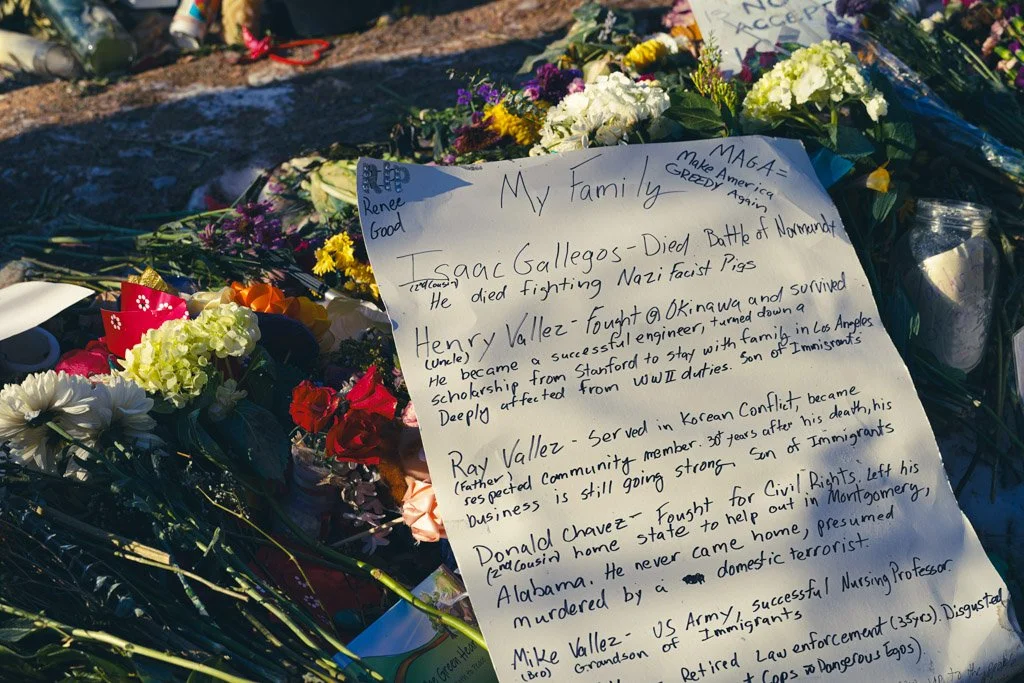 NO
ACCEPT
RIP
Renee
Good
My Family
MAGA=
Make America
GREEDY Again
Isaac Gallegos - Died Battle of Normandy
(2nd cousin) He died fighting Nazi Facist Pigs
Henry Vallez - Fought @ Okinawa and survived
(uncle) He became a successful engineer, turned down a
scholarship from Stanford to stay with family in Los Angeles
Deeply affected from WWII duties. Son of Immigrants
Ray Vallez - Served in Korean Conflict, became
(father) respected community member. 30 years after his death, his
business is still going strong. Son of Immigrants
Donald Chavez - Fought for Civil Rights. Left his
(2nd cousin) home state to help out in Montgomery,
Alabama. He never came home, presumed
murdered by a domestic terrorist.
Mike Vallez - US Army, successful Nursing Professor
(Bro) Grandson of Immigrants
Retired Law enforcement (35yrs). Disgusted
Cops → Dangerous Egos)
Green